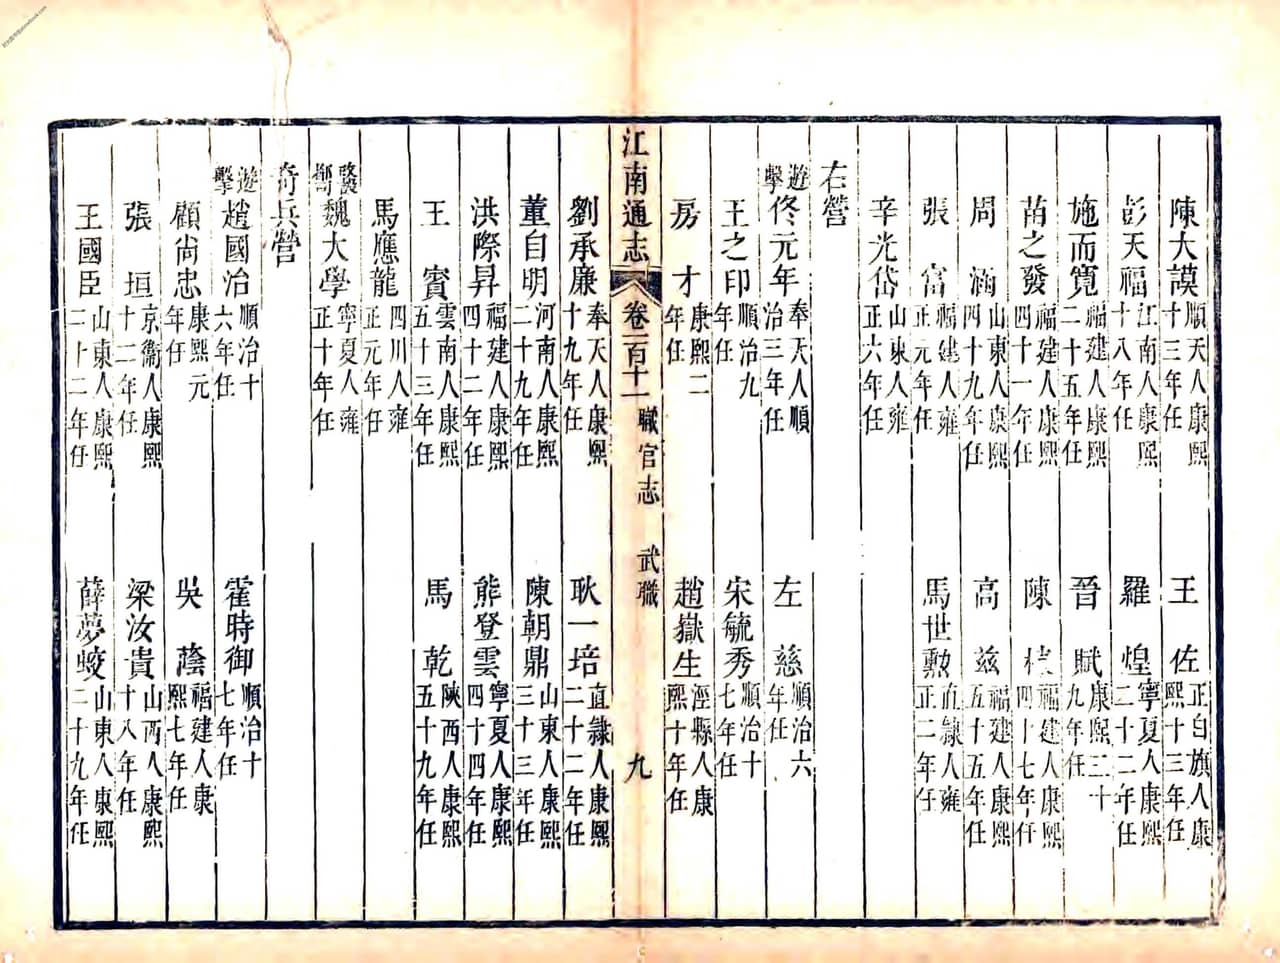 陳大謨 順天人康熙十三年任 王佐 正白旗人康熙十三年任
彭天福 江南人康熙十八年任 羅煌 寧夏人康熙二十二年任
施而寬 福建人康熙二十五年任 晉賦 康熙三十九年任
苗之發 福建人康熙四十一年任 陳 福建人康熙四十七年任
周涵 山東人康熙四十九年任 高茲 福建人康熙五十五年任
張富 福建人雍正元年任 馬世勲 直隸人雍正二年任
辛光岱 山東人雍正六年任
右營
遊擊 佟元年 奉天人順治三年任 左慈 順治六年任
王之印 順治九年任 宋毓秀 順治十七年任
房才 康熙二年任 趙嶽生 涇縣人康熙十年任
江南通志 卷一百十一 職官志 武職 九
劉承廉 奉天人康熙十九年任 耿一培 直隸人康熙二十二年任
董自明 河南人康熙二十九年任 陳朝鼎 山東人康熙三十三年任
洪際昇 福建人康熙四十二年任 熊登雲 寧夏人康熙四十四年任
王賓 雲南人康熙五十三年任 馬乾 陝西人康熙五十九年任
馬應龍 四川人雍正元年任
魏大學 寧夏人雍正十年任
奇兵營
遊擊 趙國治 順治十六年任 霍時御 順治十七年任
顧尚忠 康熙元年任 吳蔭 福建人康熙七年任
張垣 京衞人康熙十二年任 梁汝貴 山西人康熙十八年任
王國臣 山東人康熙二十二年任 薛夢蛟 山東人康熙二十九年任